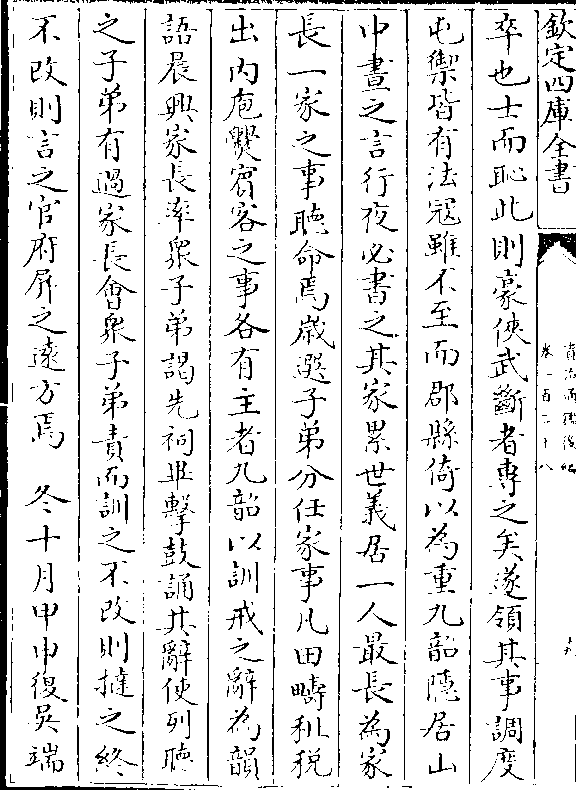 欽定四庫全書
卒也士而恥此則豪俠武斷者專之矣遂領其事調度
屯禦皆有法寇雖不至而郡縣倚以為重九韶隱居山
中晝之言行夜必書之其家累世義居一人最長為家
長一家之事聽命焉歲選子弟分任家事凡田疇租税
出內庖爨賓客之事各有主者九韶以訓戒之辭為韻
語晨興家長率衆子弟謁先祠畢擊鼓誦其辭使列聽
之子弟有過家長會衆子弟責而訓之不改則撻之終
不改則言之官府屏之遠方焉　冬十月甲申復吳端